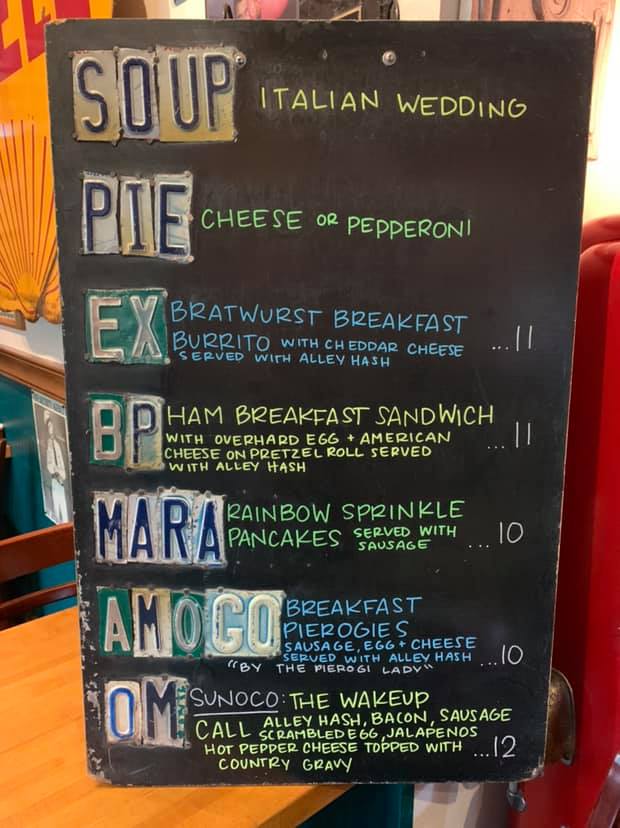 SOUP ITALIAN WEDDING
PIE CHEESE OR PEPPERONI
EX BRATWURST BREAKFAST
BURRITO WITH CHEDDAR CHEESE ...11
SERVED WITH ALLEY HASH
BP HAM BREAKFAST SANDWICH
WITH OVERHARD EGG + AMERICAN ...11
CHEESE ON PRETZEL ROLL SERVED
WITH ALLEY HASH
MARA RAINBOW SPRINKLE
PANCAKES SERVED WITH
SAUSAGE ...10
AMOCO BREAKFAST
PIEROGIES
SAUSAGE, EGG + CHEESE
SERVED WITH ALLEY HASH ...10
"BY THE PIEROGI LADY"
OM SUNOCO: THE WAKEUP
CALL ALLEY HASH, BACON, SAUSAGE
SCRAMBLED EGG, JALAPENOS
HOT PEPPER CHEESE TOPPED WITH ...12
COUNTRY GRAVY